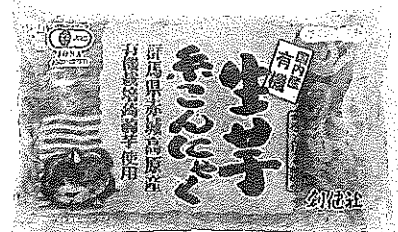 国内産
有機
生芋
糸こんにゃく
群馬県赤城高原産
有機栽培蒟蒻芋使用
JAS
創健社